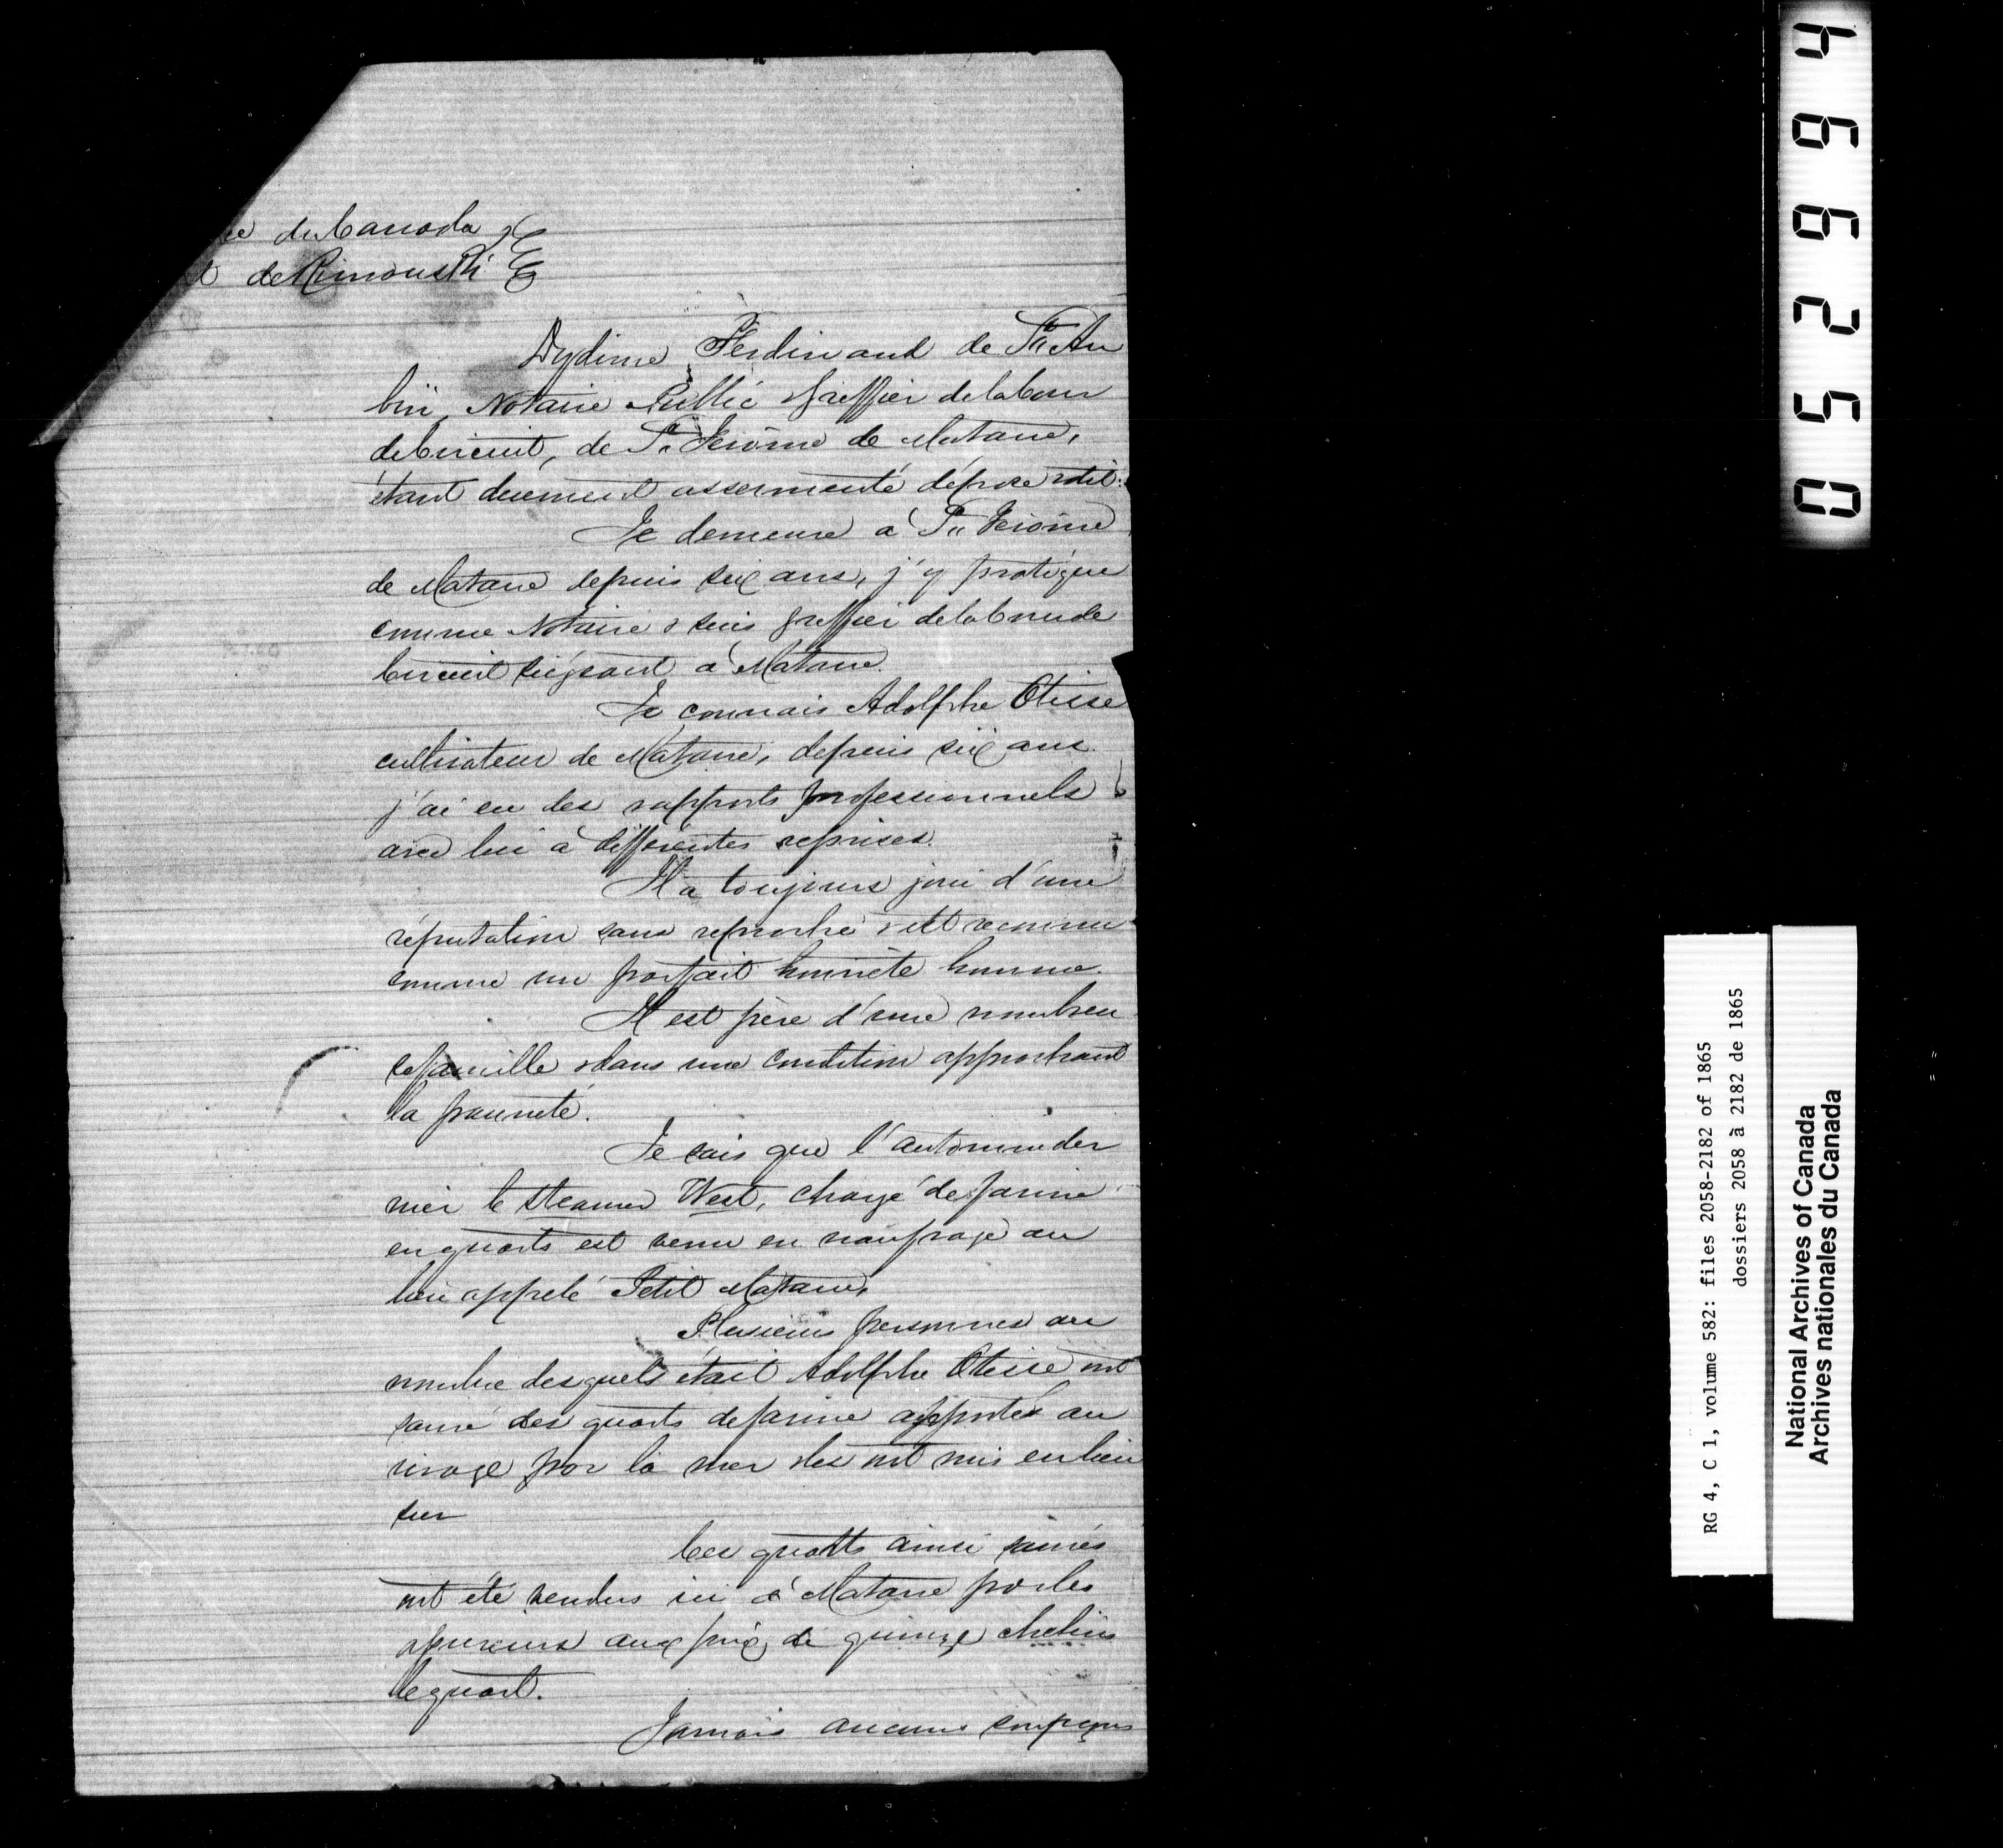 re du Canada
t de Rimouski
Dydime Ferdinand de St Au
bin, Notaire Public Greffier de la Cour
de Circuit, de St Jerôme de Matane,
étant duement assermenté dépose & dit:
Je demeure à St Jerôme
de Matane depuis six ans, j'y pratique
comme Notaire & suis greffier de la Cour de
Circuit siégeant à Matane.
Je connais Adolphe Otisse
cultivateur de Matane, depuis six ans
j'ai eu des rapports professionnels
avec lui à différentes reprises.
Il a toujours joui d'une
réputation sans reproche & est reconnu
comme un parfait honnête homme.
Il est père d'une nombreu
se famille & dans une condition approchant
la pauvreté.
Je sais que l'automne der
nier le Steamer West, chargé de farine
en quarts est venu en naufrage au
lieu appelé Petit Matane,
Plusieurs personnes au
nombre desquels était Adolphe Otisse ont
sauvé des quarts de farine apportés au
rivage par la mer & les ont mis en lieu
sur
Ces quarts ainsi sauvés
ont été vendus ici à Matane par les
assureurs aux prix de quinze chelins
le quart.
Jamais aucuns soupçons
052994
RG 4, C 1, volume 582: files 2058-2182 of 1865
dossiers 2058 à 2182 de 1865
National Archives of Canada
Archives nationales du Canada